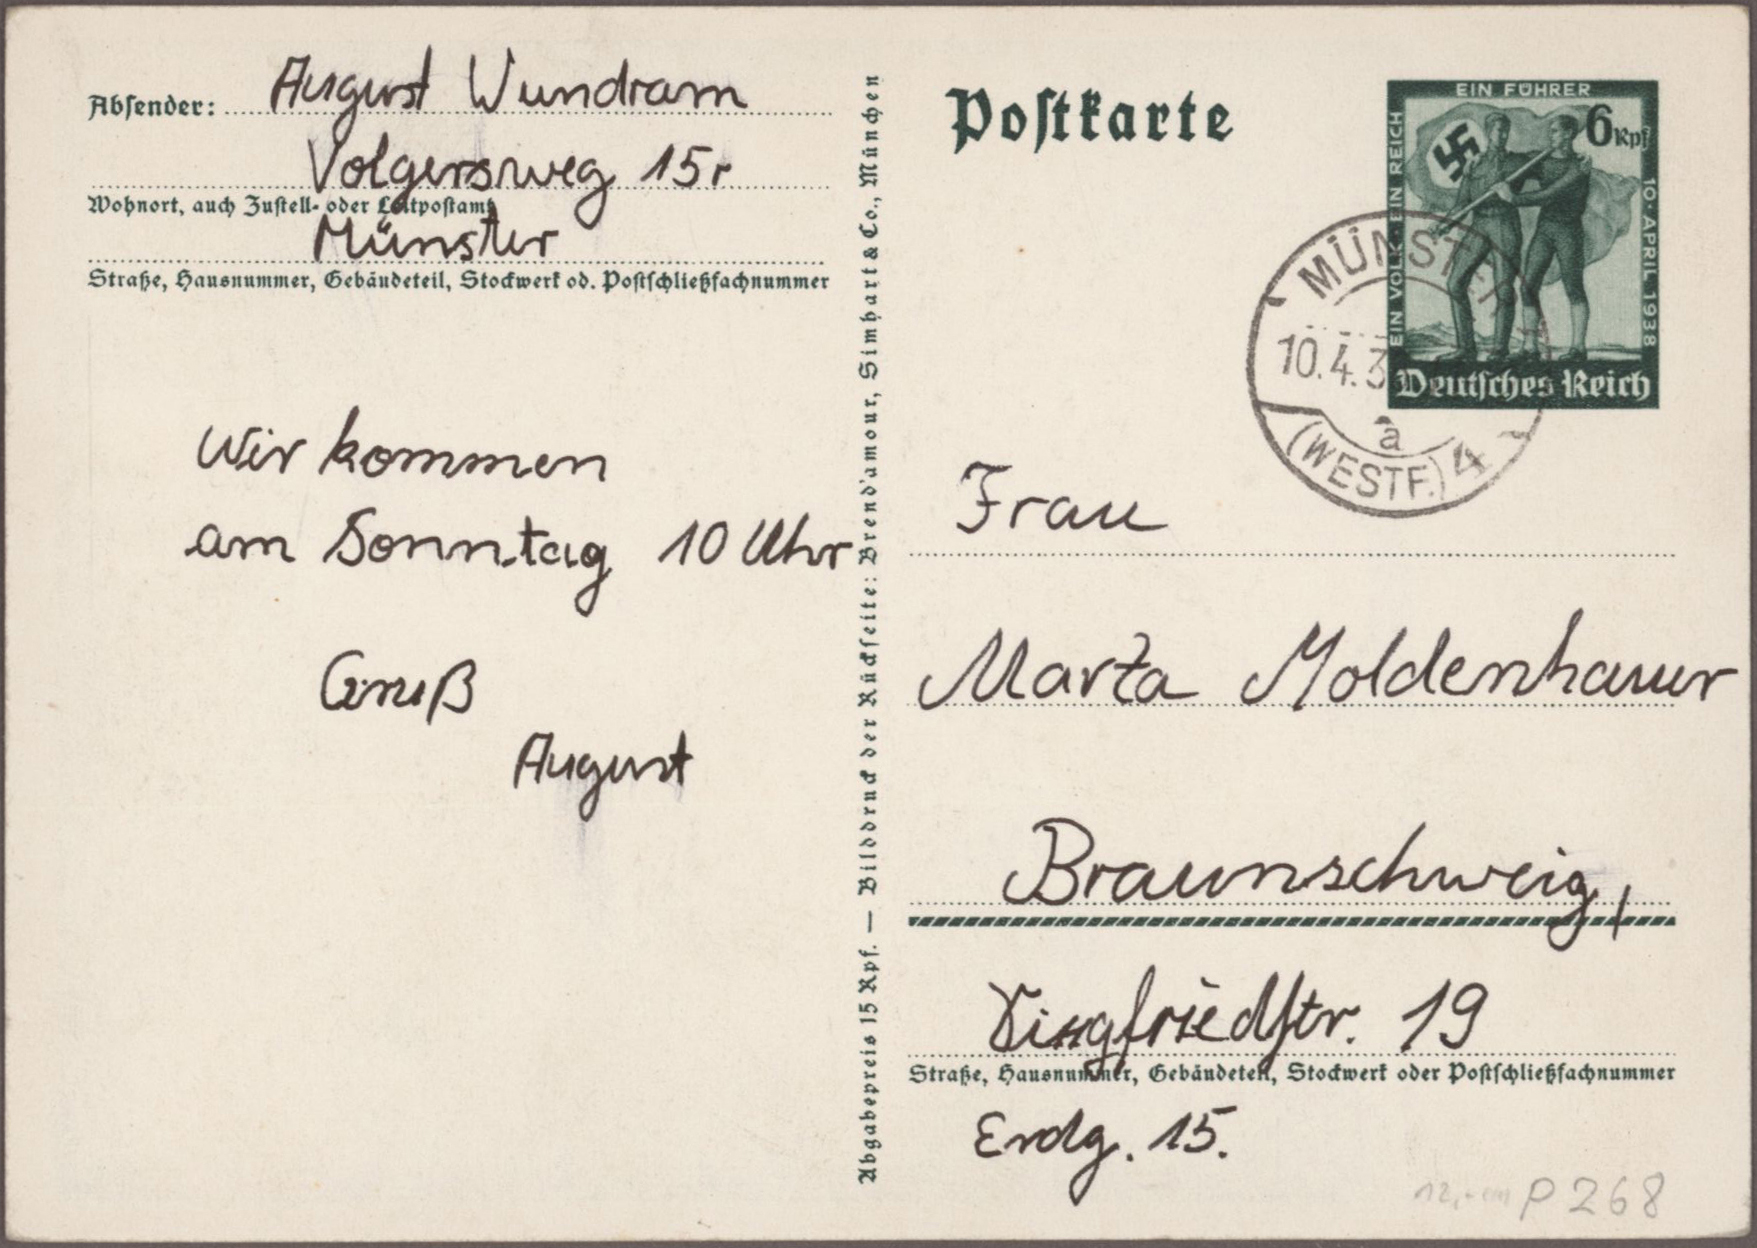 Absender: August Wundram
Volgersweg 15r
Wohnort, auch Zustell- oder Leitpostamt
Münster
Straße, Hausnummer, Gebäudeteil, Stockwerk od. Postschließfachnummer
Wir kommen
am Sonntag 10 Uhr
Gruß
August
Abgabepreis 15 Rpf. — Bilddruck der Rückseite: Brend'amour, Simhart & Co., München
Postkarte
EIN VOLK EIN REICH
EIN FÜHRER
10. APRIL 1938
6 Rpf
Deutsches Reich
MÜNSTER
10.4.3
a
(WESTF.) 4
Frau
Marta Moldenhauer
Braunschweig,
19
Straße, Hausnummer, Gebäudeteil, Stockwerk oder Postschließfachnummer
Erdg. 15.
P 268